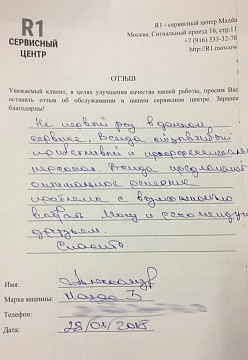 R1
СЕРВИСНЫЙ
ЦЕНТР
R1 - сервисный центр Mazda
Москва, Сигнальный проезд 16, стр.11
+7 (916) 533-32-78
http://R1.moscow
ОТЗЫВ
Уважаемый клиент, в целях улучшения качества нашей работы, просим Вас
оставить отзыв об обслуживании в нашем сервисном центре. Заранее
благодарны!
Не первый раз в данном
сервисе. Всегда отзывчивый
приветливый и профессиональный
персонал. Всегда предложат
оптимальное решение
проблемы с возможностью
выбора. Могу и рекомендую
друзьям.
Спасибо
Имя: Александр
Марка машины: Мазда 3
Телефон:
Дата: